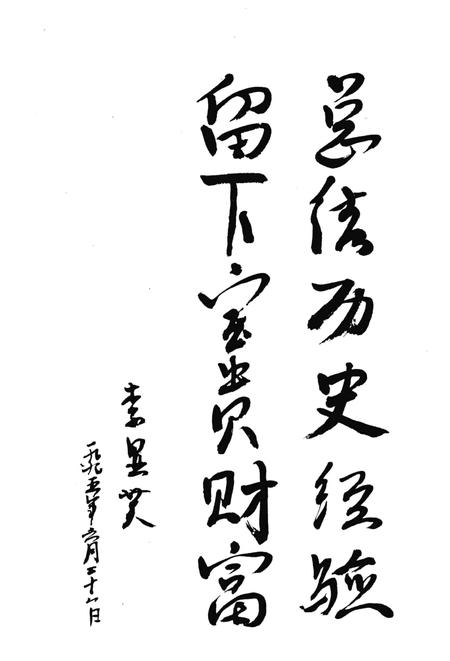 总结历史经验
留下宝贵财富
李昱
一九九五年六月二十八日